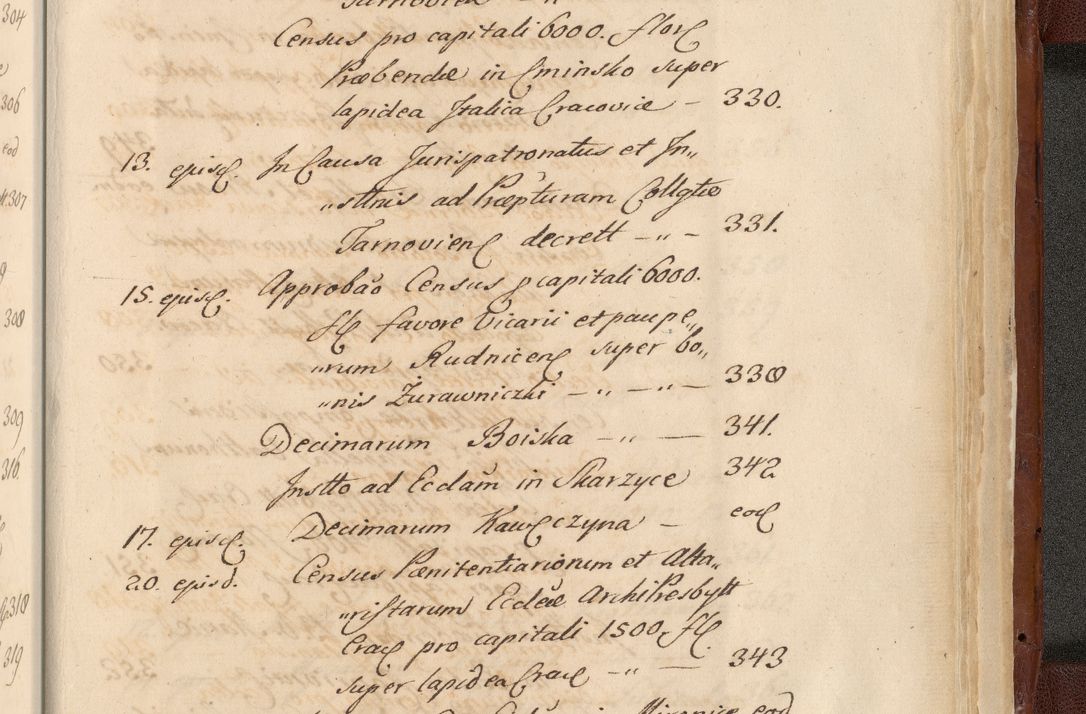 Census pro capitali 6000. flor
Præbendæ in Cminsko super
lapidea Italica Cracoviæ – 330.
13. episc. In Causa Jurispatronatus et In„
„sttnis ad Præpturam Collgtæ
Tarnovien decrett – „ – 331.
15. episc. Approbão Census p capitali 6000.
fl favore Vicarii et paupe„
„rum Rudnicen super bo„
„nis Żurawniczki – „ – „ – 338
Decimarum Boiska – „ – 341.
Instto ad Ecclam in Skarzyce 342
17. episc. Decimarum Kawęczyna – eod
20. episd. Census Pænitentiariorum et Alta„
„ristarum Eccłæ ArchiPresbytt
Crac pro capitali 1500. fl.
super lapidea Crac – „ – 343
304
306
eod
307
308
309
316.
318
319